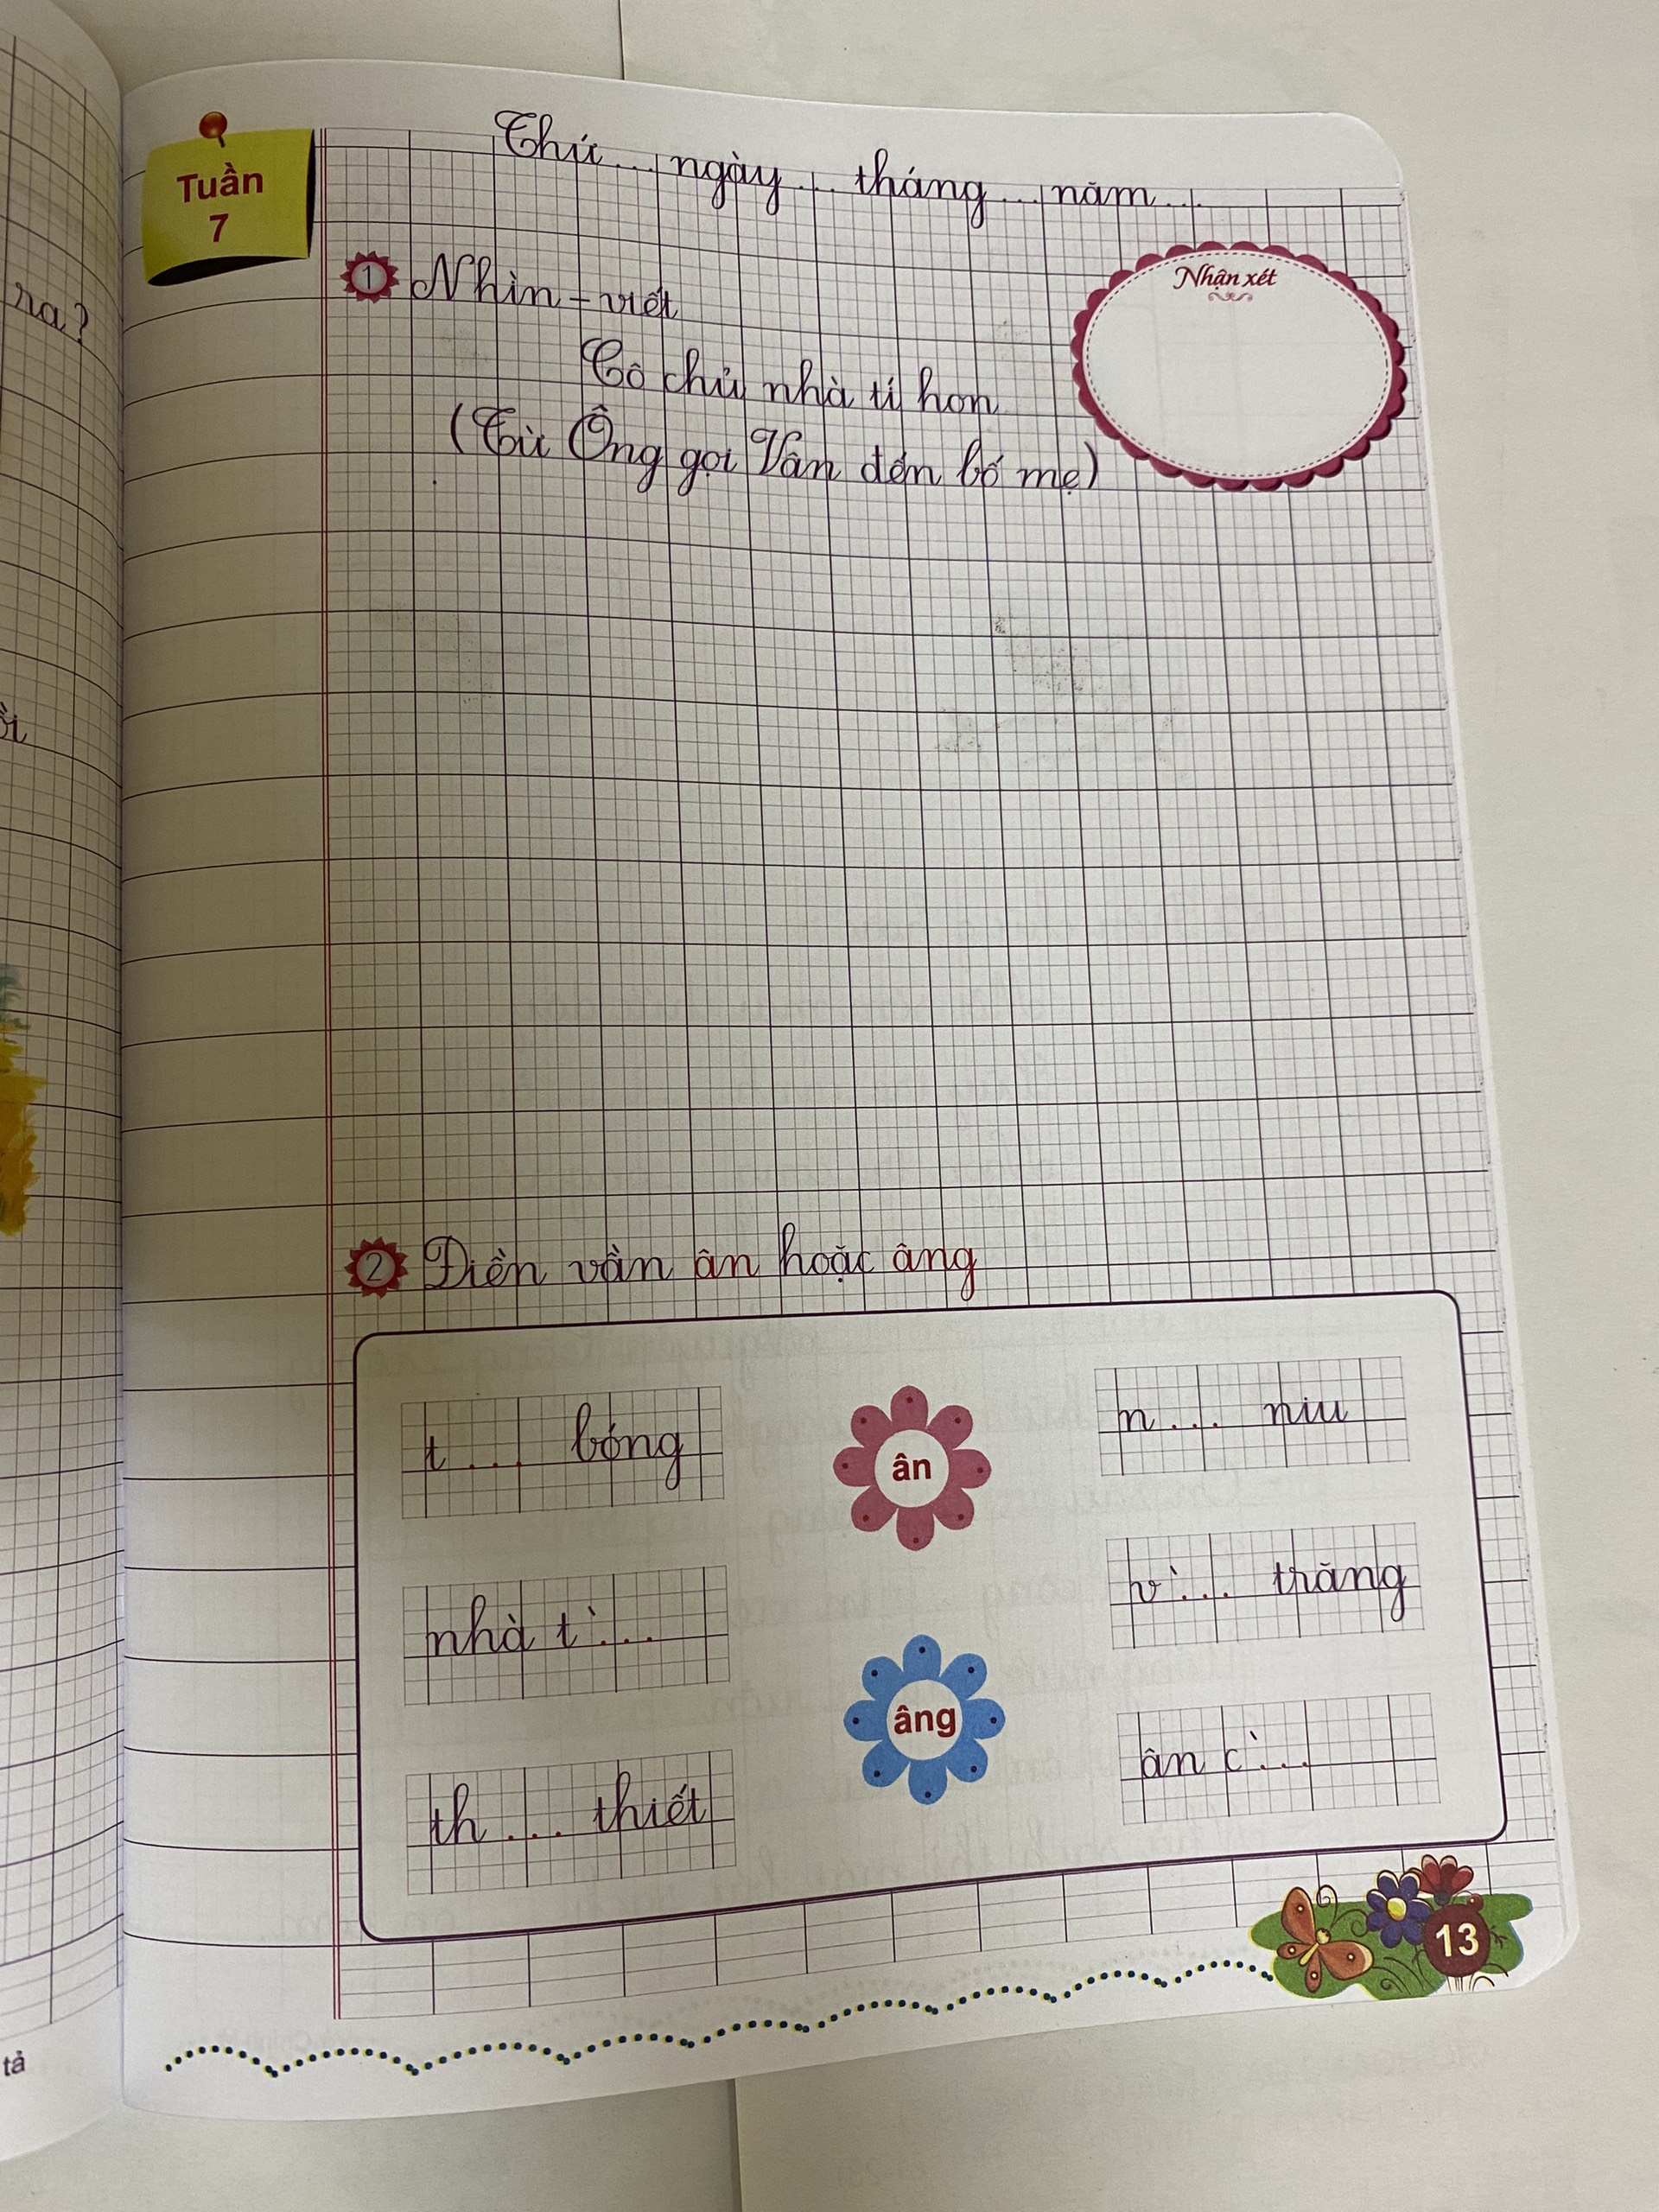 ra?
ồi
tả
Tuần
7
Thứ... ngày... tháng... năm...
1 Nhìn - viết
Nhận xét
Cô chủ nhà tí hon
(Từ Ông gọi Vân đến bố mẹ)
2 Điền vần ân hoặc âng
t... bóng
ân
n... niu
nhà t̀...
v̀... trăng
âng
th... thiết
ân c̀...
13